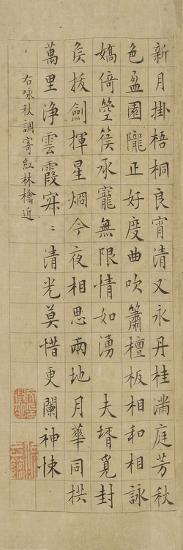 新月掛梧桐良宵清又永丹桂滿庭芳秋
色盈園隴正好度曲吹簫檀板相和相詠
嬌倚箜篌承寵無限情如湧　夫壻覓封
矦拔劍揮星燗今夜相思兩地月華同拱
萬里淨雲霞寂〻清光莫惜更闌神悚
右咏秋調寄紅林檎近